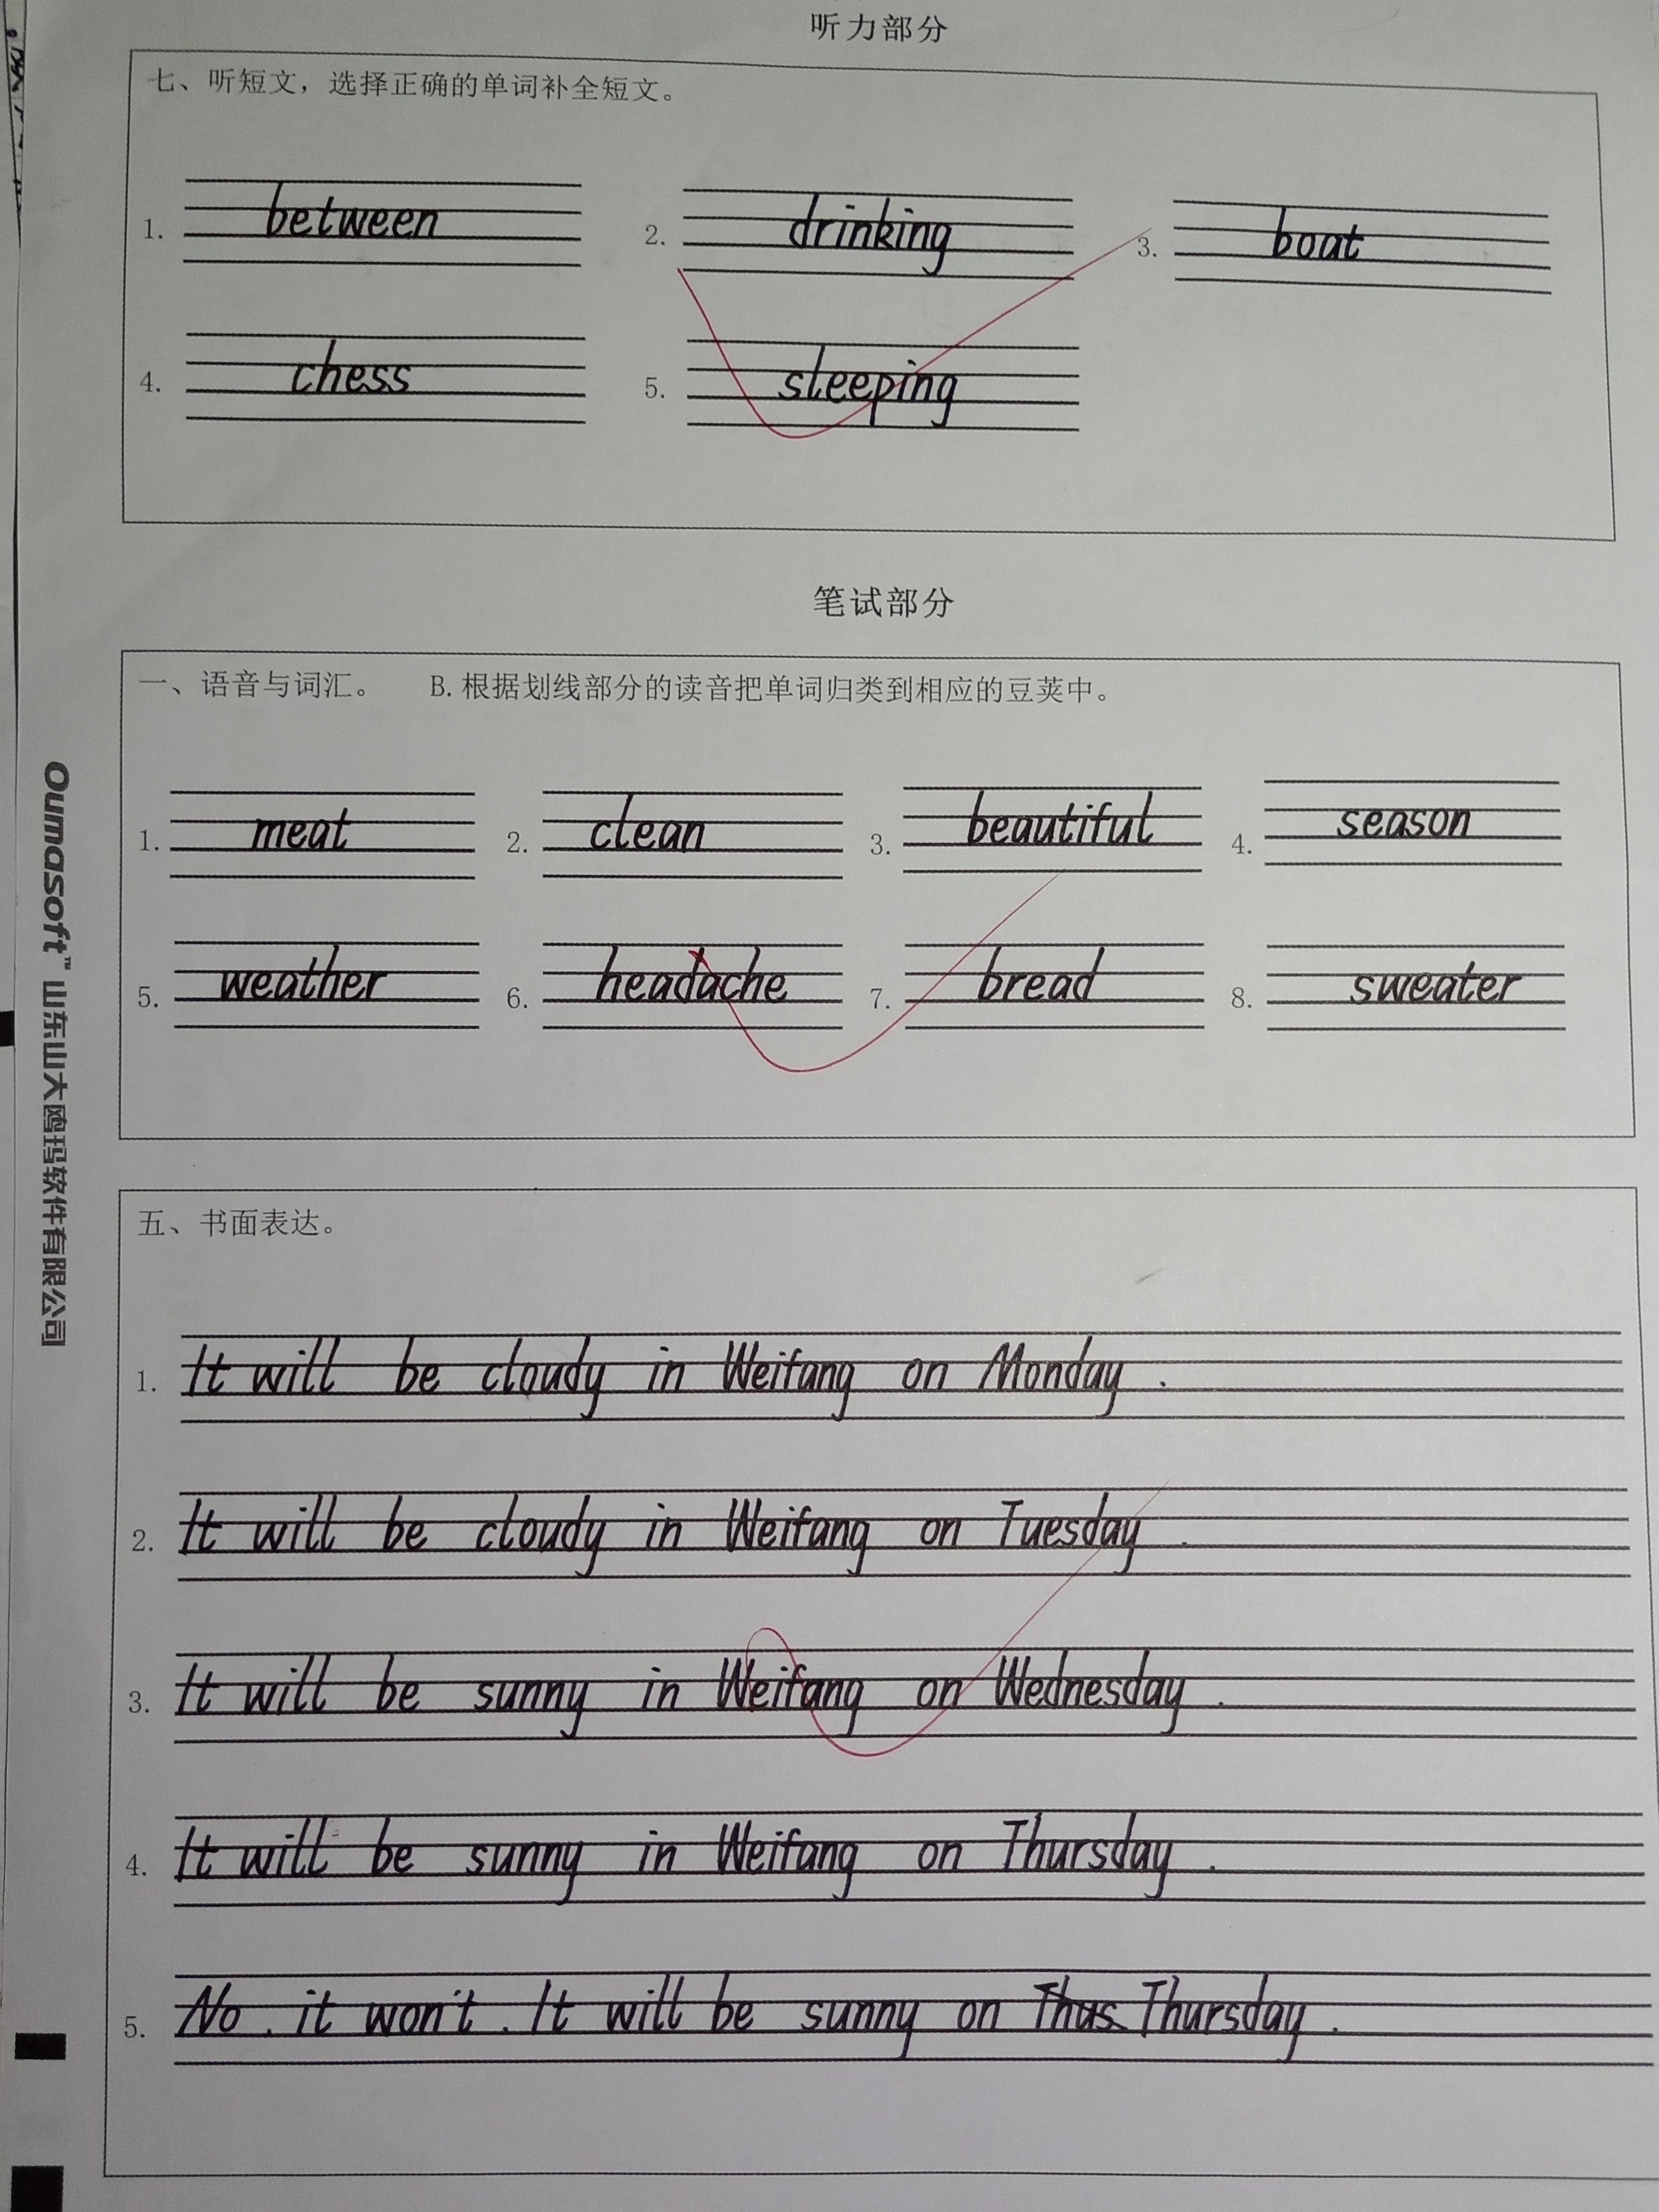 听力部分
七、听短文，选择正确的单词补全短文。
1. between 2. drinking 3. boat
4. chess 5. sleeping
笔试部分
一、语音与词汇。 B. 根据划线部分的读音把单词归类到相应的豆荚中。
1. meat 2. clean 3. beautiful 4. season
5. weather 6. headache 7. bread 8. sweater
五、书面表达。
1. It will be cloudy in Weifang on Monday.
2. It will be cloudy in Weifang on Tuesday.
3. It will be sunny in Weifang on Wednesday.
4. It will be sunny in Weifang on Thursday.
5. No. it won't. It will be sunny on Thus Thursday.
Oumasoft™ 山东山大鸥玛软件有限公司